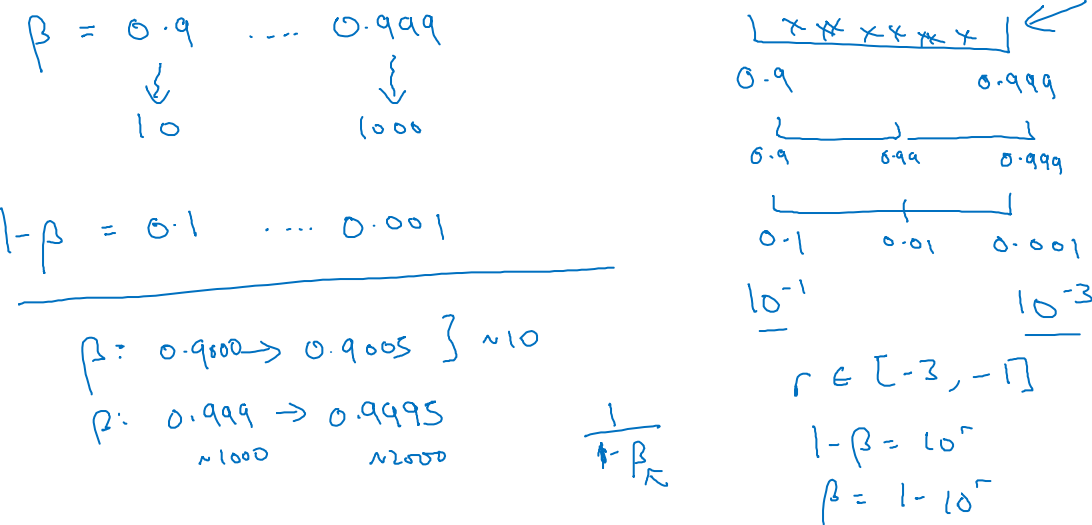 β = 0.9 .... 0.999
10 1000
1-β = 0.1 .... 0.001
β: 0.9000 → 0.9005 } ~10
β: 0.999 → 0.9995
~1000 ~2000
1
1-β
0.9 0.999
0.9 0.99 0.999
0.1 0.01 0.001
10⁻¹ 10⁻³
r ∈ [-3, -1]
1-β = 10ʳ
β = 1-10ʳ